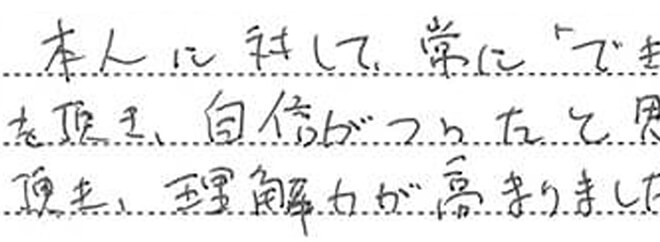 本人に対して、常に「でき
を頂き、自信がついたと思
頂き、理解力が高まりました